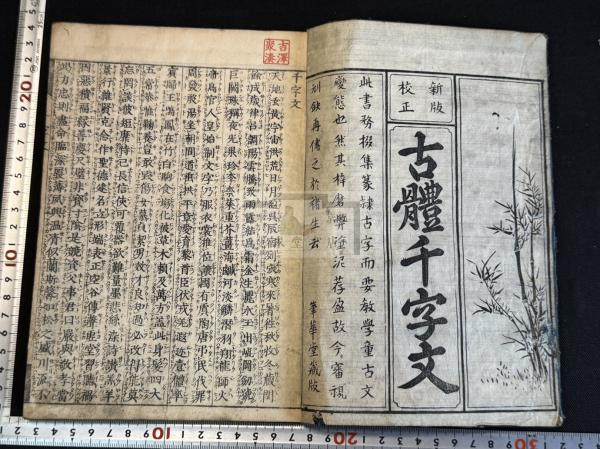 新版
校正
古體千字文
此書務掇集篆隷古字而要教學童古文
變態也然其梓磨弊
故今審視
刻飲再傳之於維生云
筆華堂藏版
吉澤
聚湊
千字文
天地玄黃宇宙洪荒日月盈昃辰宿列張寒來暑往秋收冬藏閏
餘成歲律呂調陽雲騰致雨露結爲霜金生麗水玉出崐岡劒號
巨闕珠稱夜光果珍李柰菜重芥薑海鹹河淡鱗潛羽翔龍師火
帝鳥官人皇始制文字乃服衣裳推位讓國有虞陶唐弔民伐罪
周發殷湯坐朝問道垂拱平章愛育黎首臣伏戎羌遐邇壹體率
賓歸王鳴鳳在
食場化被草木賴及萬方蓋此身髮四大
五常恭惟鞠養豈敢毀傷女慕貞潔男效才良知過必改得能莫
忘罔談彼短靡恃己長信使可覆器欲難量墨悲絲染詩讚羔羊
景行維賢克念作聖德建名立形端表正空谷傳聲虛堂習聽禍
因惡積福緣善慶尺璧非寶寸陰是競資父事君曰嚴與敬孝當
竭力忠則盡命臨深履薄夙興溫凊似蘭斯馨如松之盛川流不